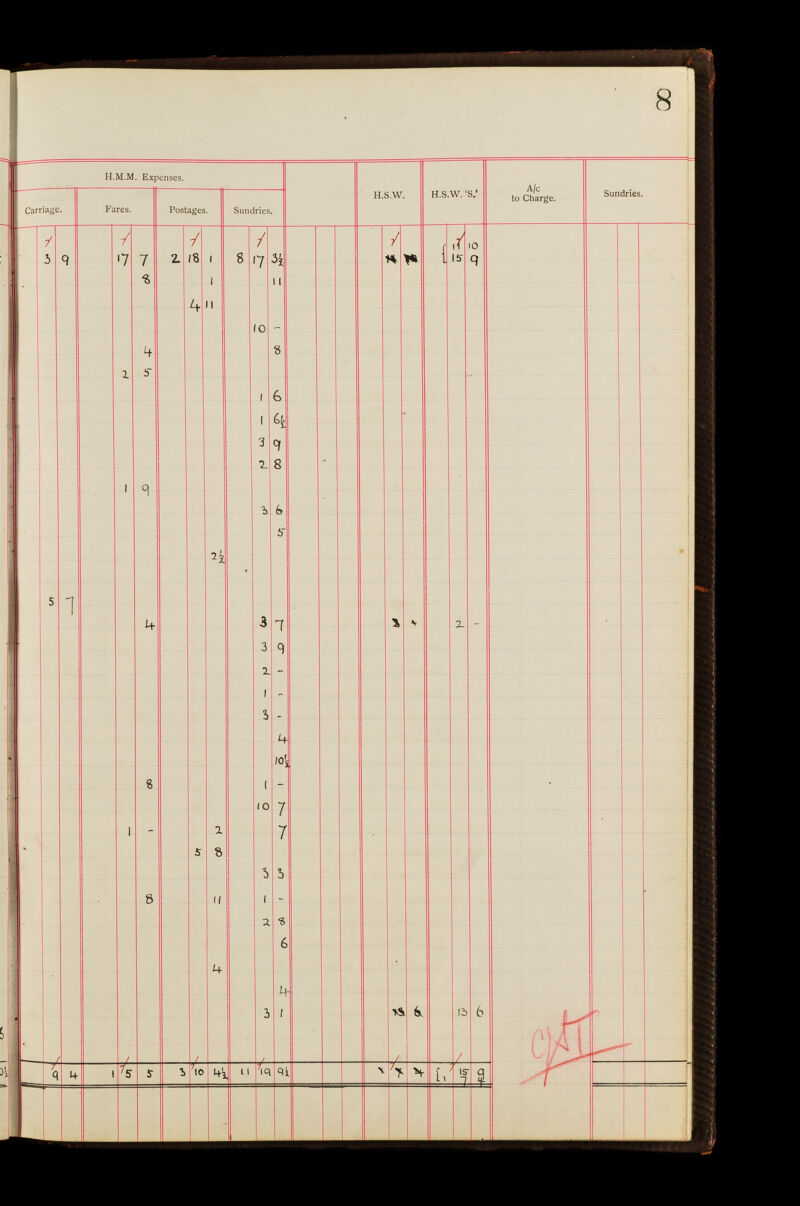 8
H.M.M. Expenses.
H.S.W. H.S.W. 'S.' A/c to Charge. Sundries.
Carriage. Fares. Postages. Sundries.
11 10
3 9 17 7 2 18 1 8 17 3½ 15 9
8 1 11
4 11
10 -
4 8
2 5
1 6
1 6½
3 9
2 8
1 9
3 6
5
2½
5 7
4 3 7 2 -
3 9
2 -
1 -
3 -
4
10½
8 1 -
10 7
1 - 2 7
5 8
3 3
8 11 1 -
2 8
6
4
4
3 1 13 6
9 4 1 5 5 3 10 4½ 11 19 9½ 15 9
1 7 4